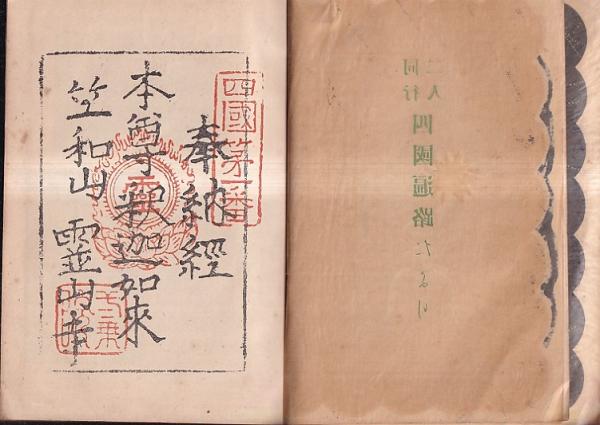 同行
二人
四國遍路
だより
四國第一番
奉納經
本尊釋迦如來
竺和山 靈山寺